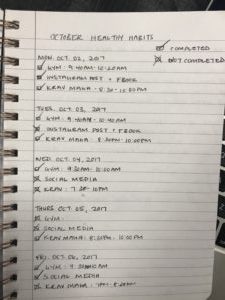 OCTOBER HEALTHY HABITS
COMPLETED
NOT COMPLETED
MON. OCT 02, 2017
GYM: 9:40AM-10:20AM
INSTAGRAM POST + FBOOK
KRAV MAGA: 8:30-10:00PM
TUES. OCT 03, 2017
GYM: 9:40AM-10:40AM
INSTAGRAM POST + FBOOK
KRAV MAGA: 8:30PM-10:00PM
WED. OCT 04, 2017
GYM: 9:30AM-10:30AM
SOCIAL MEDIA
KRAV: 7:30-10PM
THURS OCT 05, 2017
GYM:
SOCIAL MEDIA
KRAV MAGA: 8:30PM-10:00PM
FRI. OCT 06, 2017
GYM:
SOCIAL MEDIA
KRAV MAGA: 7PM-8:30PM